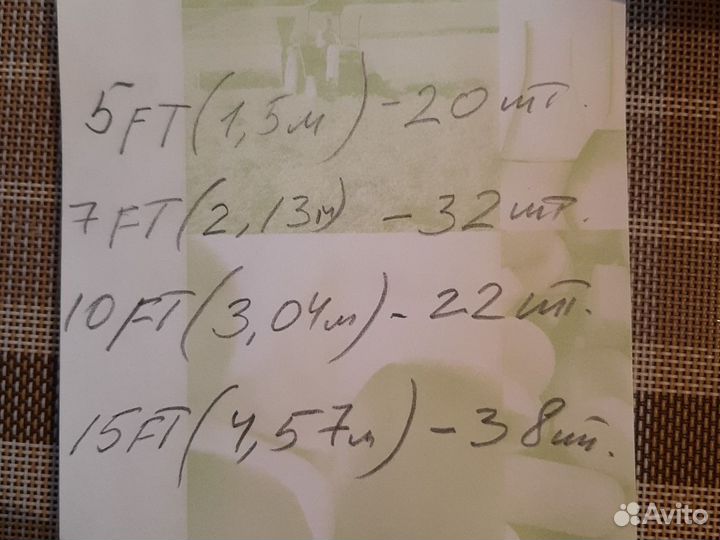 5FT(1,5м) - 20 шт.
7FT(2,13м) - 32 шт.
10FT(3,04м) - 22 шт.
15FT(4,57м) - 38 шт.
Avito